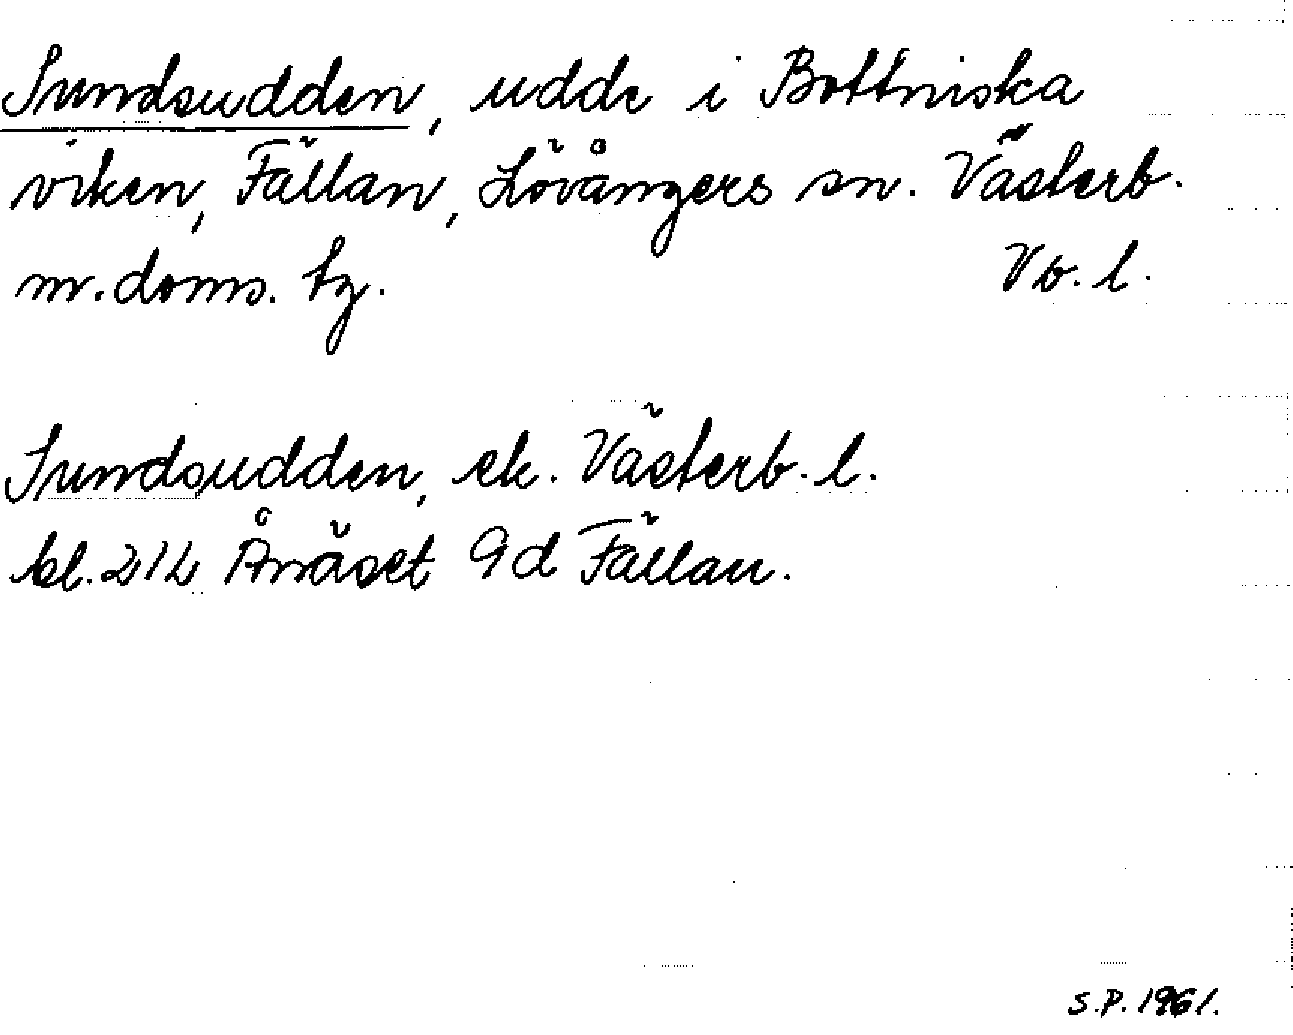 Sundsudden, udde i Bottniska
viken, Fällan, Lövångers sn. Västerb.
m. doms. tg. Vb. l.
Sundsudden, ek. Västerb. l.
bl. 212 Ånäset 9d Fällan.
S.P. 1961.